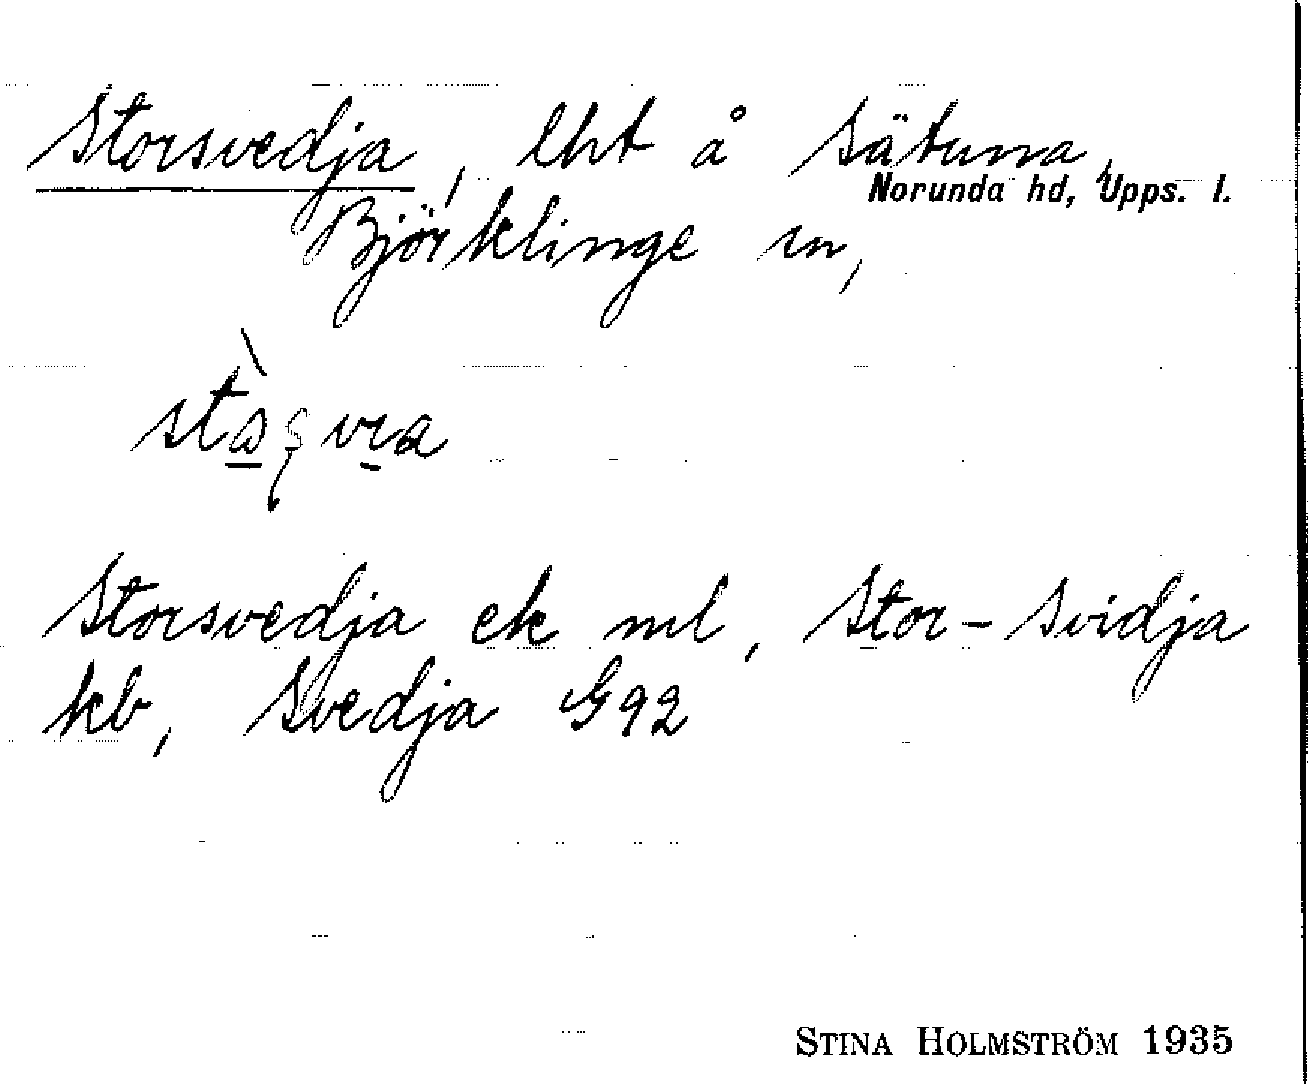 Storsvedja, lht å Sätuna,
Norunda hd, Upps. l.
Björklinge sn,
Storsvedja ek ml, Stor-Svidja
kb, Svedja G92
STINA HOLMSTRÖM 1935